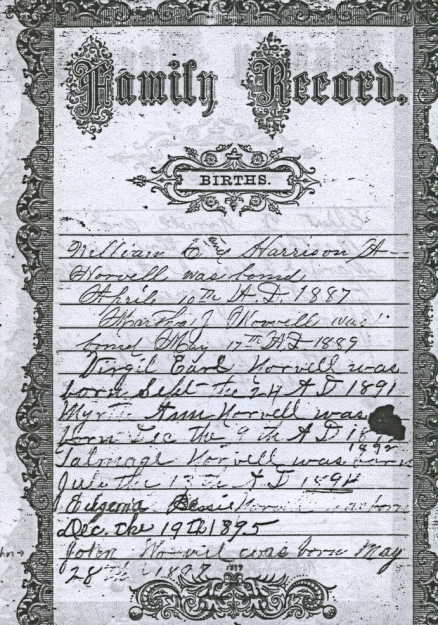 Family Record.
BIRTHS.
William C Harrison
Norvell was bornd
April 10th A.D. 1887
Martha J Norvell was
bornd May 17th AD 1889
Virgil Earl Norvell was
born Sept the 24 A D 1891
Myrtle Ann Norvell was
born Dec the 9th A D
1892
Talmage Norvell was
July the 13th A D 1894
Eugenia Bessie Norvell was born
Dec. the 19th 1895
John Norvell was born May
28th 1897
1897